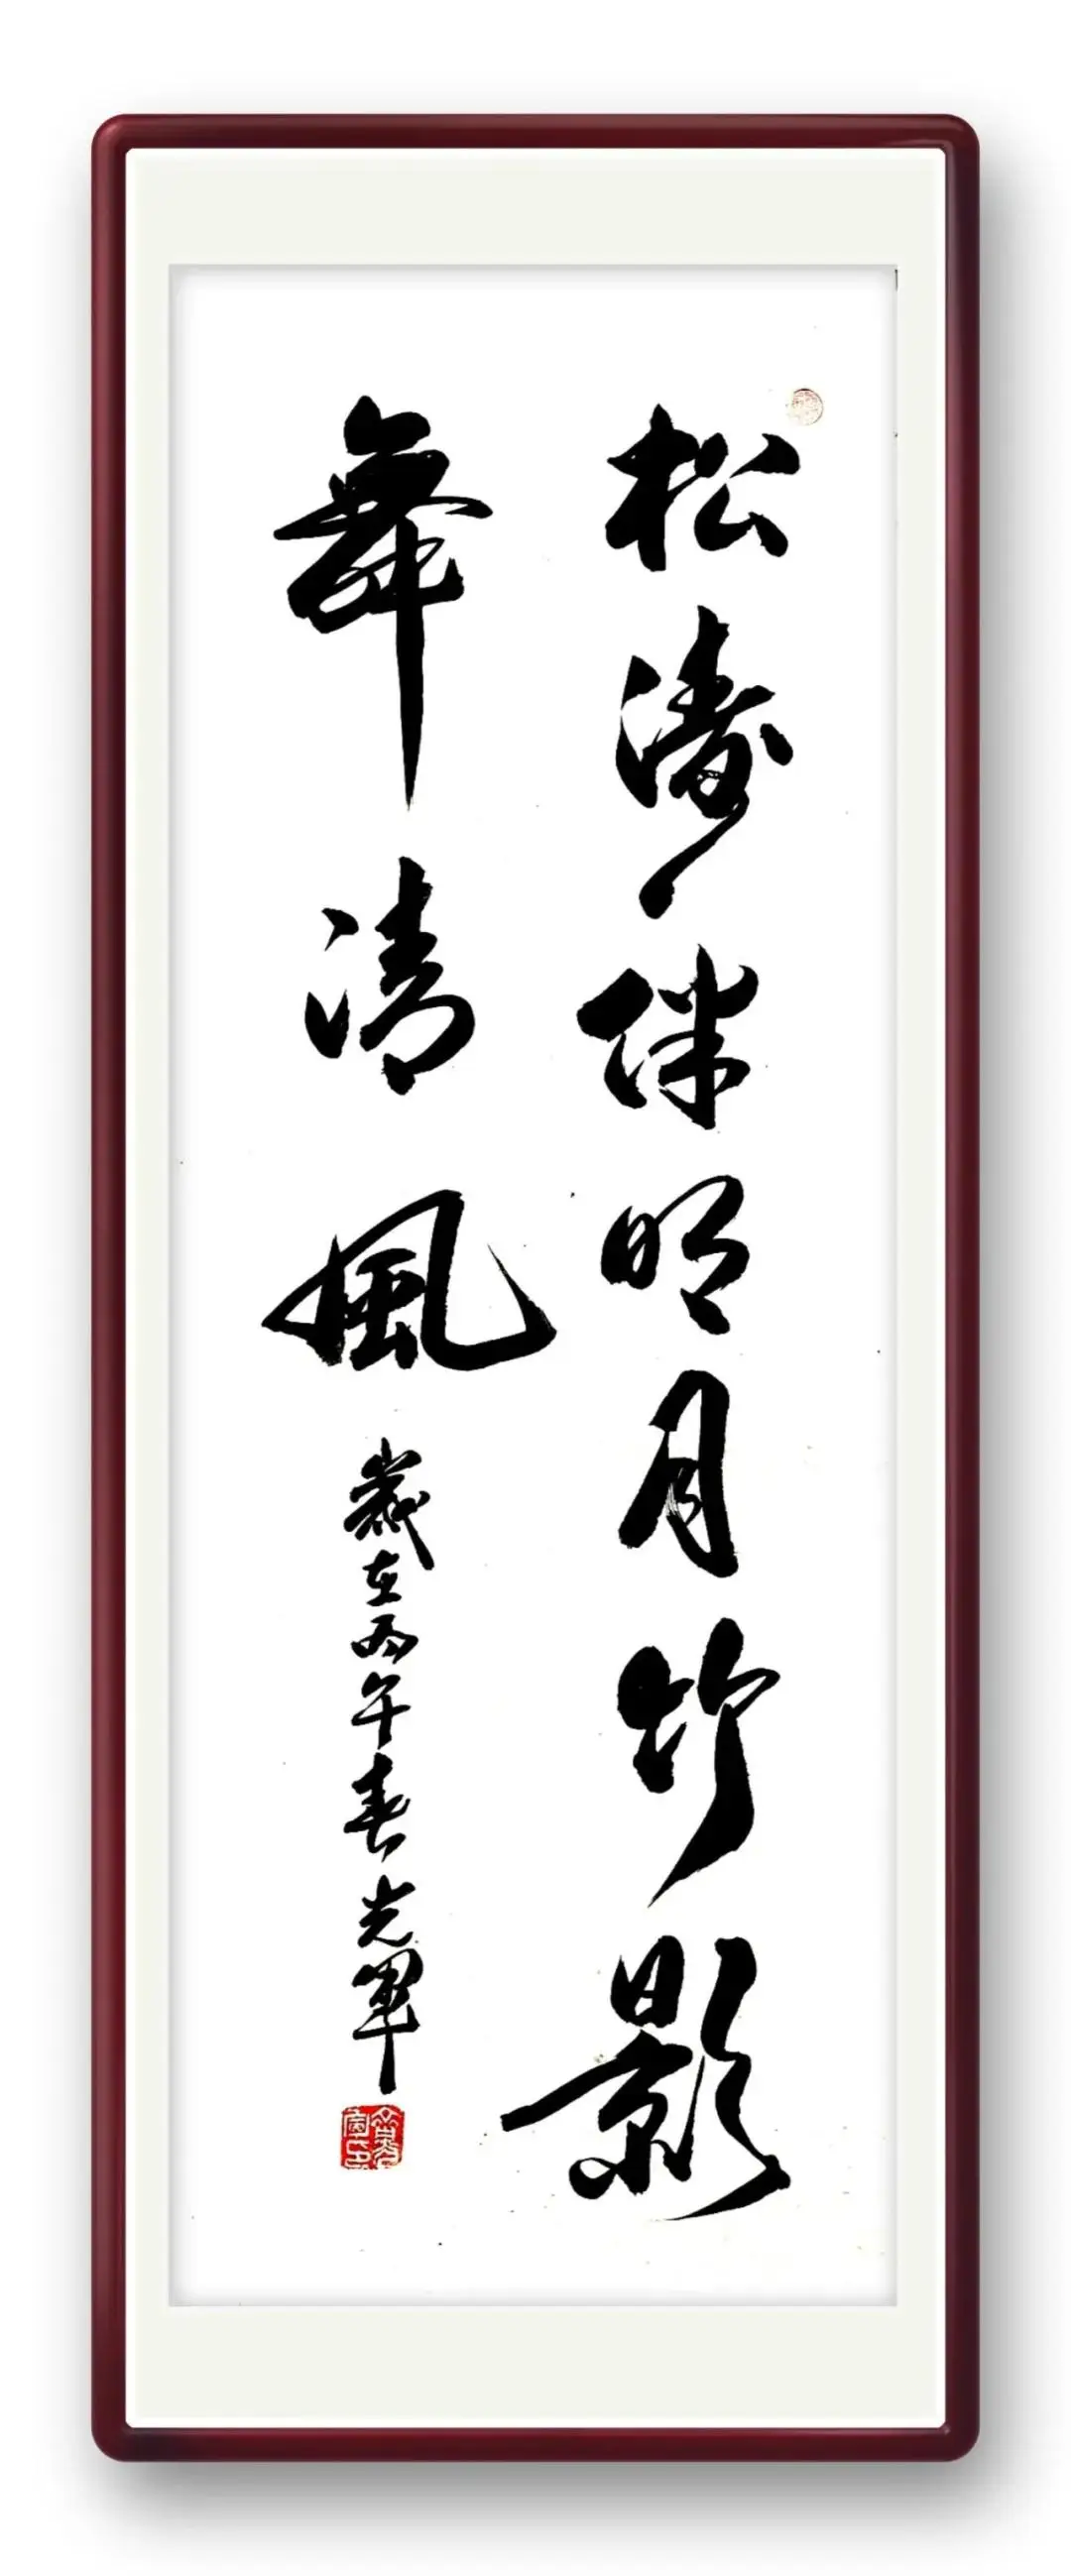 松濤伴明月竹影
舞清風
歲在丙午春光軍